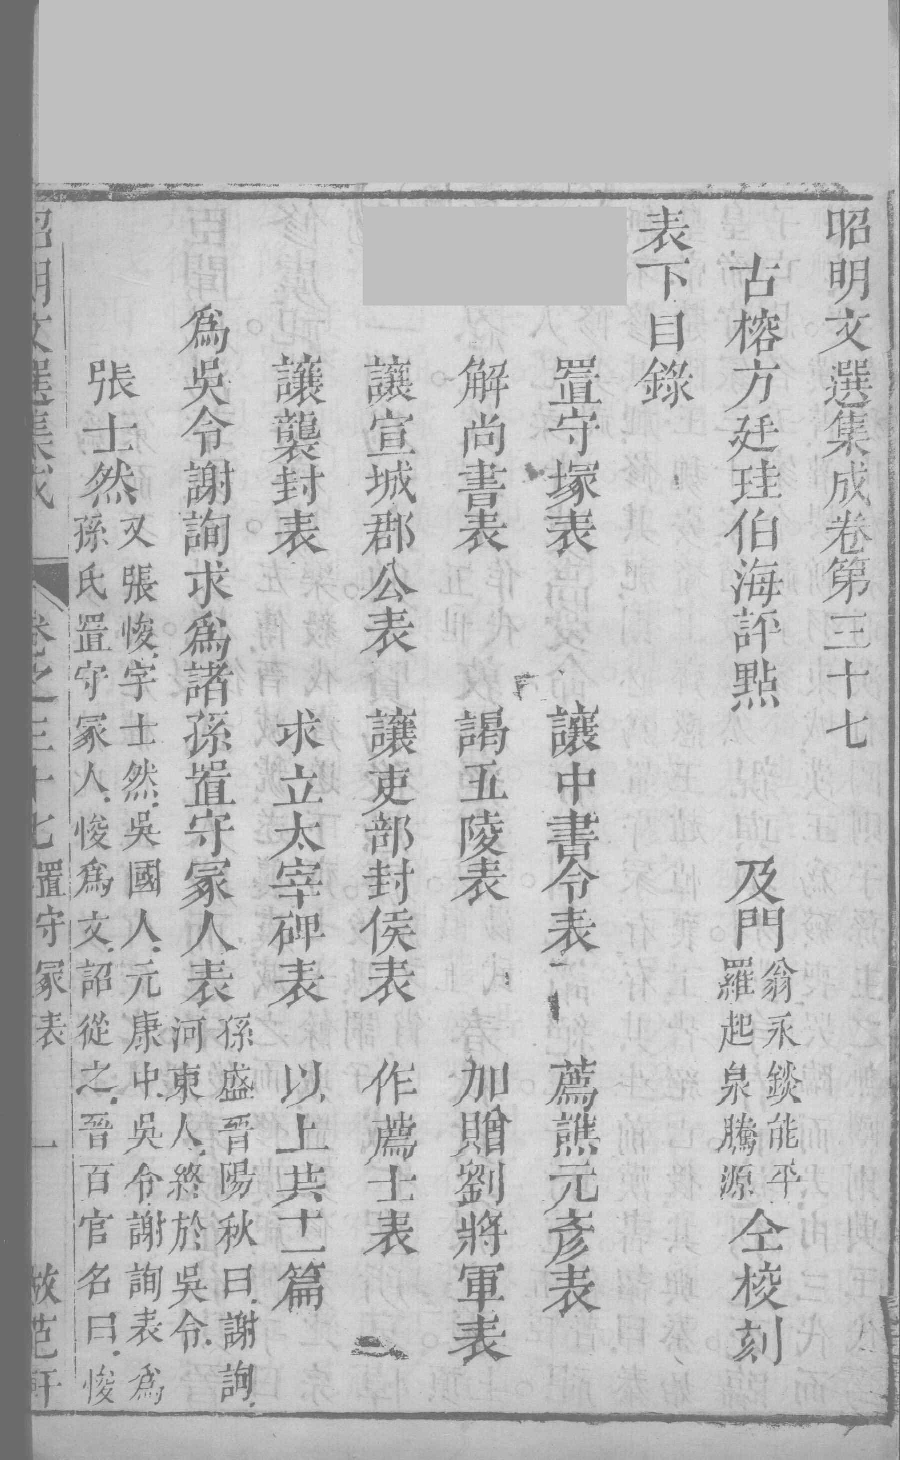 昭明文選集成卷第三十七
古榕方廷珪伯海評點 及門
翁永錟能平
羅起泉騰源
仝梭刻
表下目錄
置守塚表 讓中書令表 薦譙元彥表
解尚書表 謁五陵表 加贈劉將軍表
讓宣城郡公表 讓吏部封侯表 作薦士表
讓襲封表 求立太宰碑表 以上共十一篇
為吳令謝詢求為諸孫置守冢人表
孫盛晉陽秋曰謝詢
河東人終於吳令
張士然
又張悛字士然吳國人元康中吳令謝詢表為
孫氏置守冢人悛為文詔從之晉百官名曰悛
昭明文選集成 卷之三十七 置守冢表 一 倣范軒